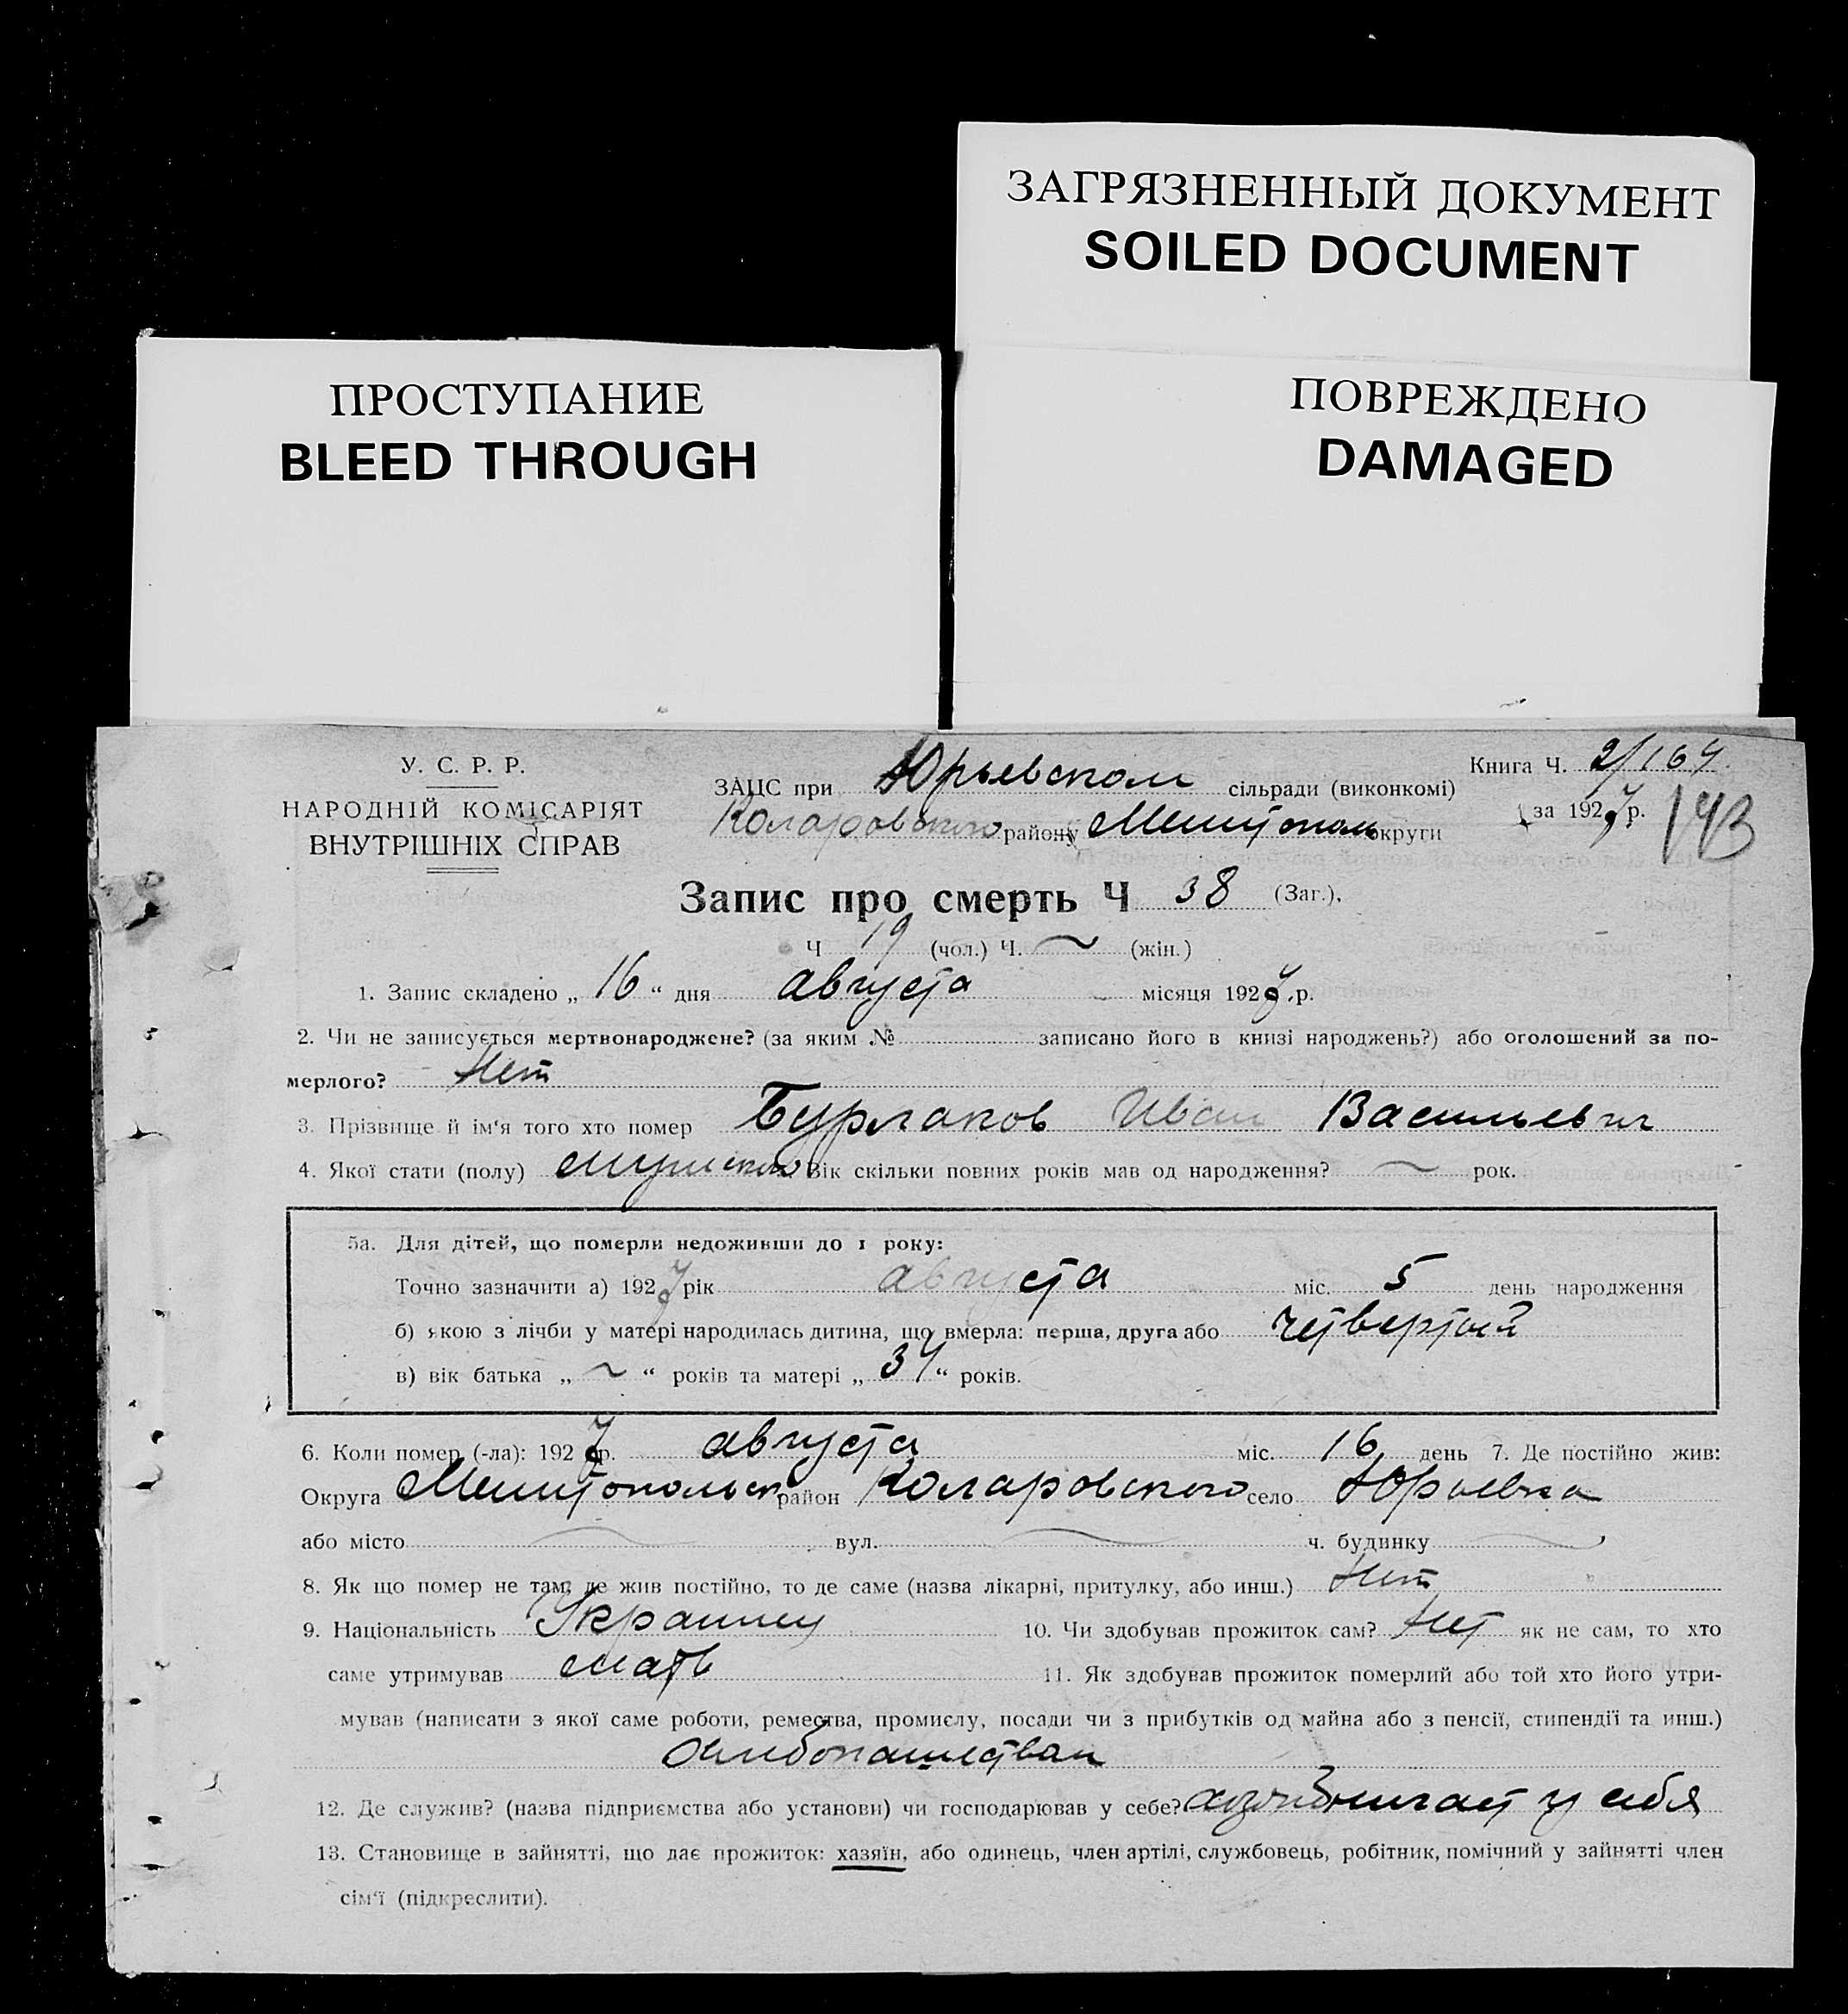 ЗАГРЯЗНЕННЫЙ ДОКУМЕНТ
SOILED DOCUMENT
ПРОСТУПАНИЕ
BLEED THROUGH
ПОВРЕЖДЕНО
DAMAGED
У. С. Р. Р.
НАРОДНІЙ КОМІСАРІЯТ
ВНУТРІШНІХ СПРАВ
ЗАЦС при Юрьевском сільради (виконкомі)
Коларовского району Мелитополь округи
Книга Ч. 2/164
за 1927 р. 143
Запис про смерть Ч 38 (Заг.),
Ч 19 (чол.) Ч. ~ (жін.)
1. Запис складено „ 16 “ дня августа місяця 1927 р.
2. Чи не записується мертвонароджене? (за яким № записано його в книзі народжень?) або оголошений за по-
мерлого? Нет
3. Прізвище й ім‘я того хто помер Бурлаков Иван Васильевич
4. Якої стати (полу) мужского Вік скільки повних років мав од народження? ~ рок.
5а. Для дітей, що померли недоживши до 1 року:
Точно зазначити а) 1927 рік августа міс. 5 день народження
б) якою з лічби у матері народилась дитина, що вмерла: перша, друга або четвертый
в) вік батька „ ~ “ років та матері „ 34 “ років.
6. Коли помер (-ла): 1927 р. августа міс. 16 день 7. Де постійно жив:
Округа Мелитопольск район Коларовского село Юрьевка
або місто вул. ч. будинку
8. Як що помер не там, де жив постійно, то де саме (назва лікарні, притулку, або инш.) Нет
9. Національність Украинец 10. Чи здобував прожиток сам? Нет як не сам, то хто
саме утримував мать 11. Як здобував прожиток померлий або той хто його утри-
мував (написати з якої саме роботи, ремества, промислу, посади чи з прибутків од майна або з пенсії, стипендії та инш.)
Хлебопашеством
12. Де служив? (назва підприємства або установи) чи господарював у себе? у себя
13. Становище в зайнятті, що дає прожиток: хазяїн, або одинець, член артілі, службовець, робітник, помічний у зайнятті член
сім‘ї (підкреслити).